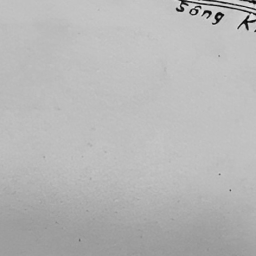 sông K